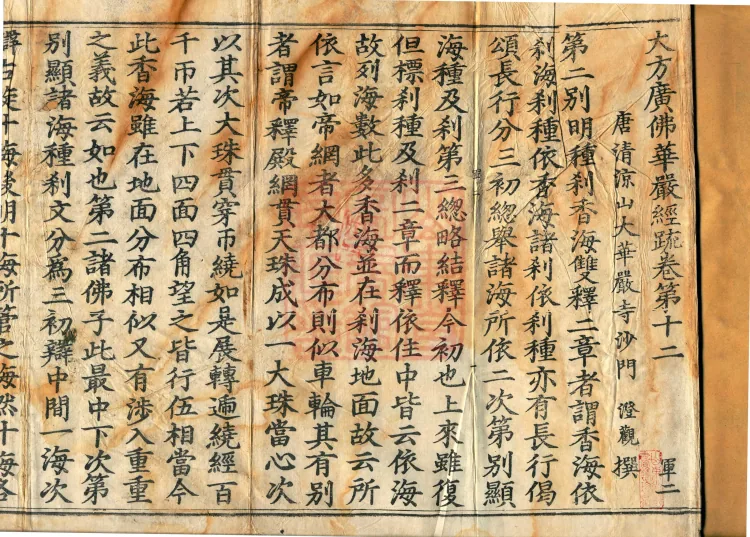 大方廣佛華嚴經䟽卷第十二 軍二
唐清涼山大華嚴寺沙門 澄觀 撰
第二別明種刹香海雙釋二章者謂香海依
刹海刹種依香海諸刹依刹種亦有長行偈
頌長行分三初總舉諸海所依二次第別顯
海種及刹第三總略結釋今初也上來雖復
但標刹種及刹二章而釋依住中皆云依海
故列海數此多香海並在刹海地面故云所
依言如帝網者大都分布則似車輪其有別
者謂帝釋殿網貫天珠成以一大珠當心次
以其次大珠貫穿帀繞如是展轉遍繞經百
千帀若上下四面四角望之皆行伍相當今
此香海雖在地面分布相似又有涉入重重
之義故云如也第二諸佛子此最中下次第
別顯諸海種刹文分爲三初辯中間一海次
右旋十海後明十海所管之海然十海各